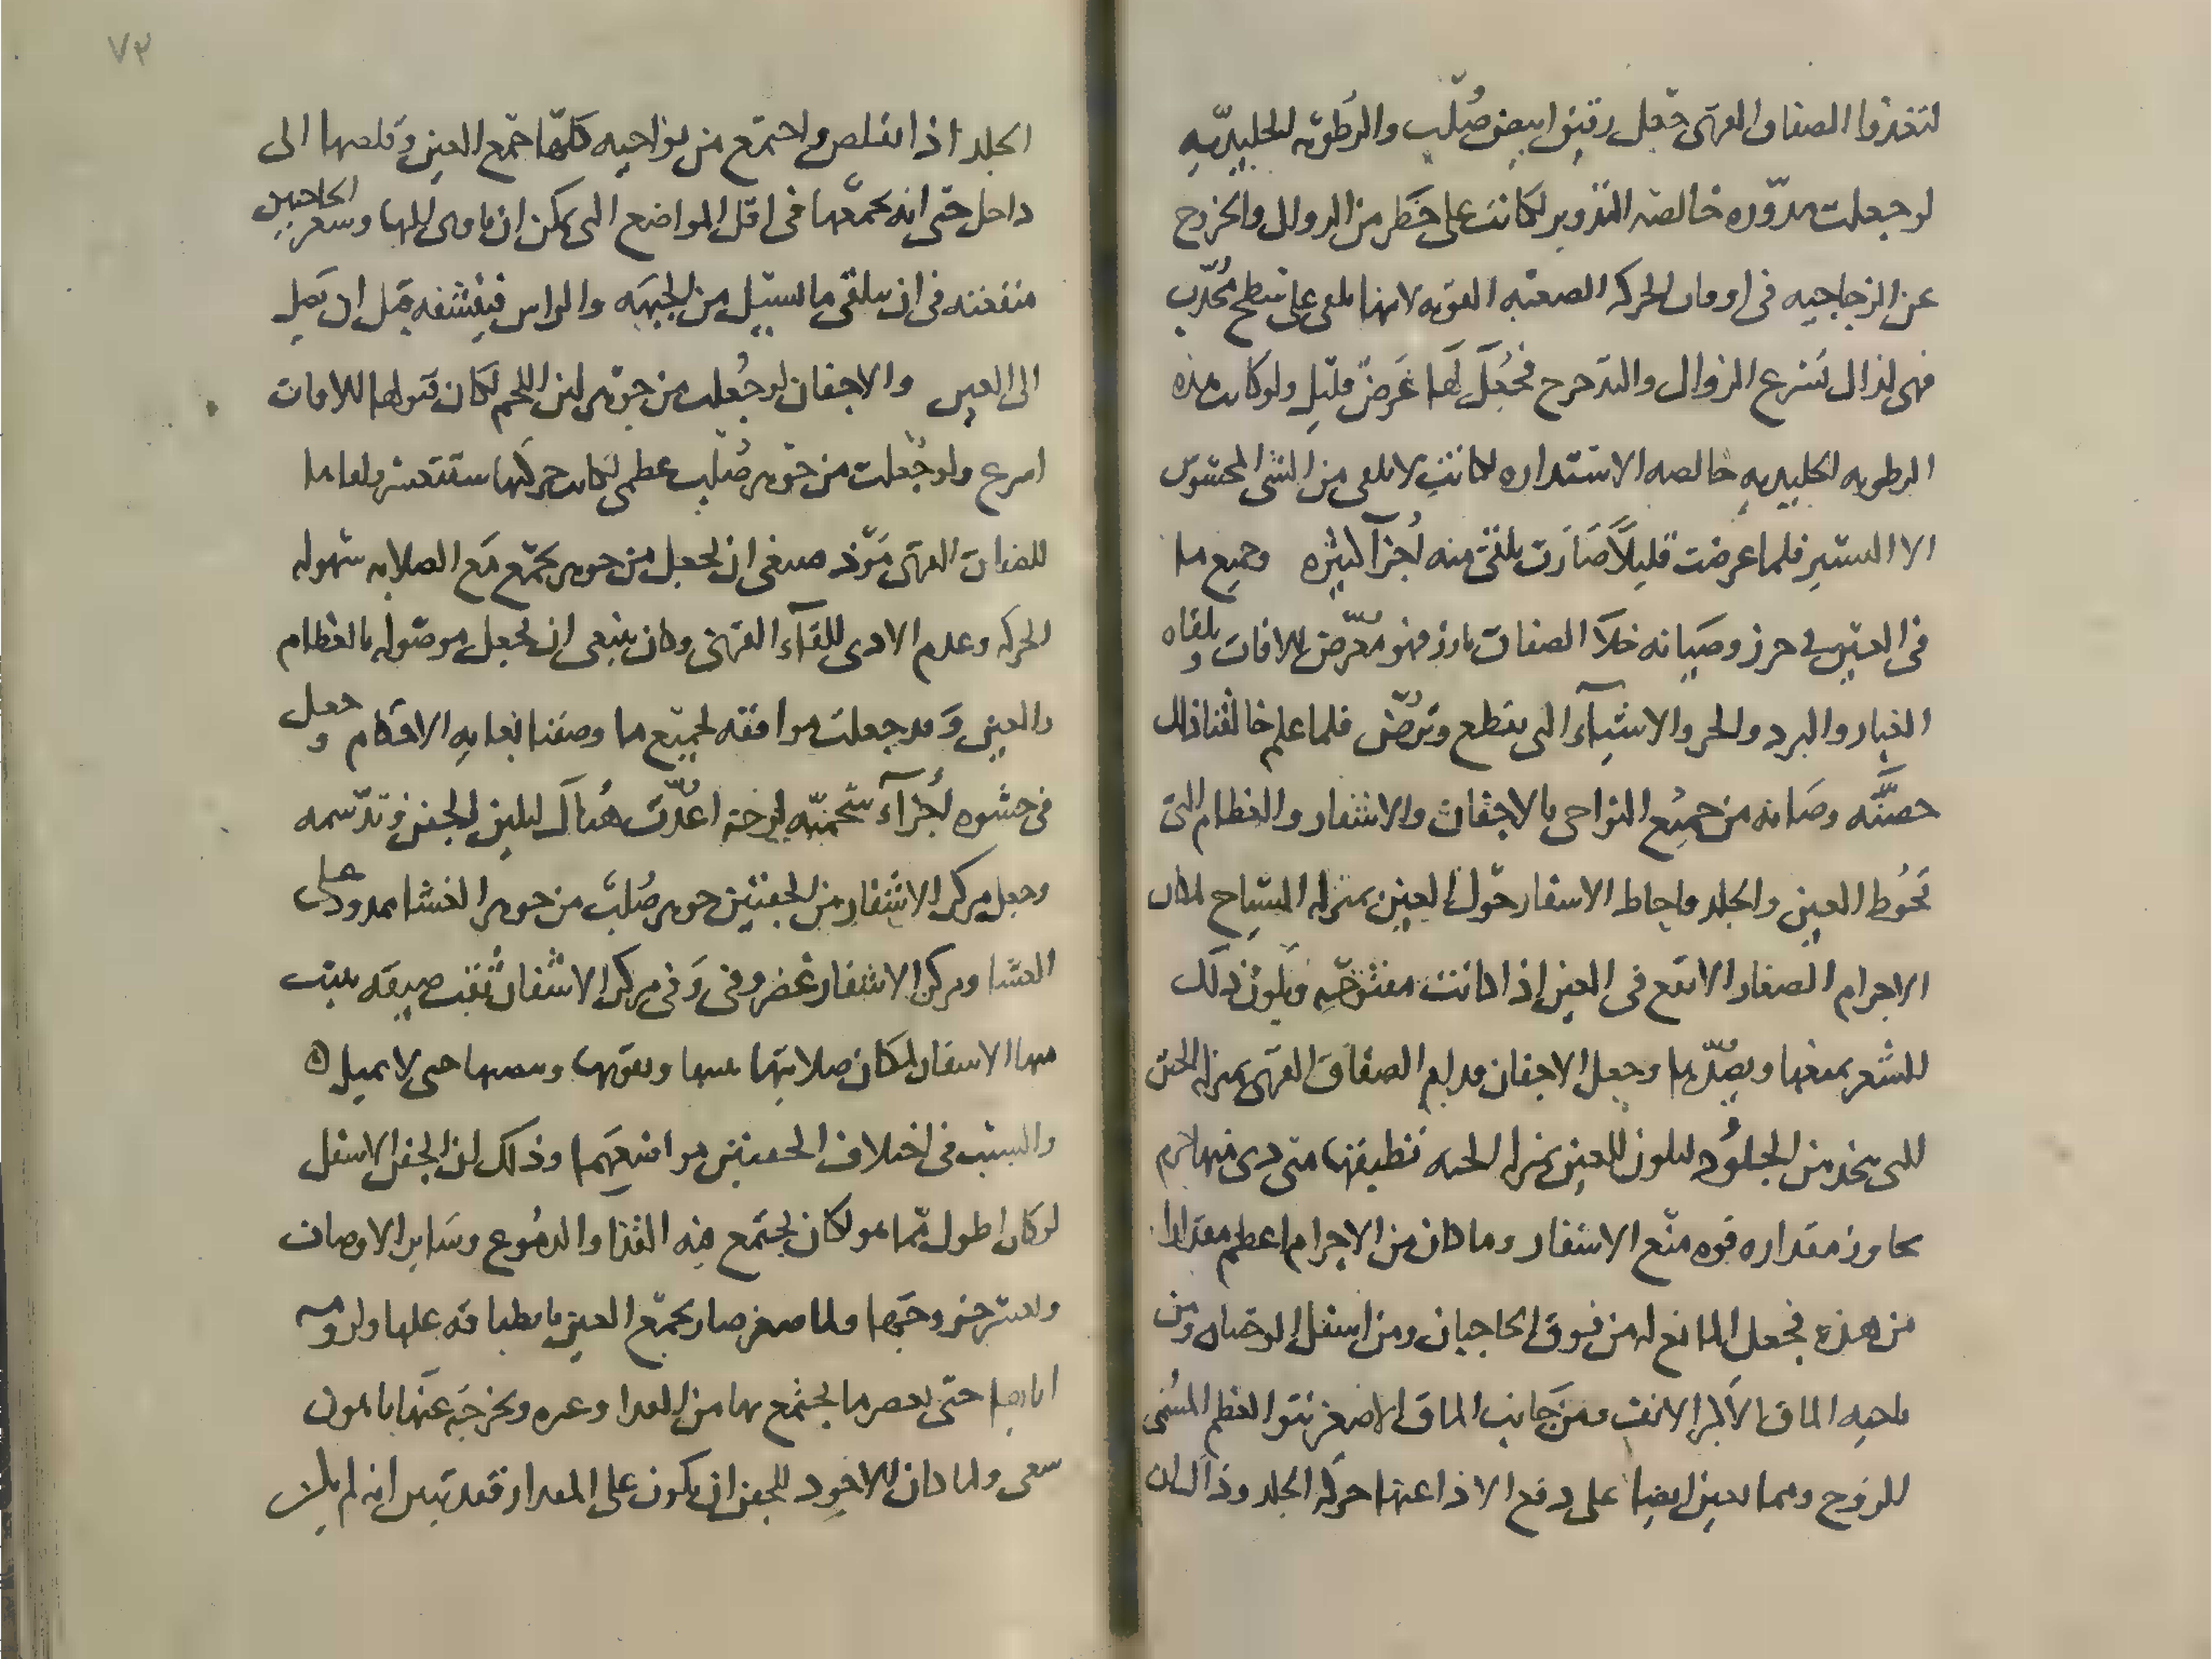 لتغذوا الصفاق القرنى جعل رقيق ابيض صُلب والرطوبه الجليديّه
لو جعلت مدّوره خالصه التدوير لكانت على خطر من الزوال والخروج
عن الزجاجيه فى اوقات الحركه الصعبه القويه لانها تلقى على سطح مُحدّب
فهى لذلك تسرع الزوال والتدحرج فجُعلَ لها عَرض قليل ولو كانت هذه
الرطوبه الجليديه خالصه الاستداره لكانت لا تلقى من الشى المحسوس
الا اليسير فلما عرضت قليلاً صَارَت تلقى منه اُجزآ كثيره وجميع ما
فى العين فى حرز وصيانه خلا الصفاق بارز فهو معرّض للافات يلقاه
الغبار والبرد والحر والاشيآء التى تقطع وترُضّ فلما علم خالقنا ذلك
حصَّنَه وصانه من جميع النواحى بالاجفان والاشفار والعظام التى
تحُوط العين والجلد واحاط الاشفار حول العين بمنزله السياح لمكان
الاجرام الصغار لا تقع فى العين إذا كانت مفتوحه ويكون ذلك
للشعر يمنعها ويصُدّها وجعل الاجفان قدام الصفاق القرنى بمنزله الجنن
التى تتخذ من الجلُود لتكون للعين بمنزله الجنه تطبقها متى دنى منها جرم
يجاوز مقداره قوه منع الاشفار وما كان من الاجرام اعظم مقدارا
من هذه فجعل المانع له من فوق الحاجبان ومن اسفل الوجنتاه ومن
ناحيه الماق الاكبر الانف ومن جَانب الماق الاصغر نتو العظم المسُمى
للزوج ومما يعين ايضا على دفع الاذا عنها حركه الجلد وذاك ان
الجلد اذا تقلص واجتمع من نواحيه كلها جمع العين وقلصها الى
داخل حتى انه يجمعها فى اقل المواضع التى يمكن ان ياوى اليها وشعر الحاجبين
منفعته فى ان يتلقى ما يسيل من الجبهه والراس فينشفه قبل ان يصل
الى العين والاجفان لو جُعلت من جوهر لين اللحم لكان قبولها للافات
اسرع ولو جُعلت من جوهر صُلب عظمى لكانت حركتها ستتعسر ولقاها
للصفاق القرنى مَوّذ فينبغى ان يجعل من جوهر يجمع مع الصلابه سهوله
الحركه وعدم الاذى للقآء القرنى وكان ينبغى ان يجعل موصوله بالعظام
والعين وَقد جعلت موافقه لجميع ما وصفنا بغايه الاحكام وجعل
فى حشوه اُجزآء شحميّه لزجه اعُدّت هُناك لتلين الجفن وتدسمه
وجعل مركز الاشفار من الجفنين جوهر صُلب من جوهر الغشا ممدود على
الغشا ومركز الاشفار غضروفى وَفى مركز الاشفار ثُقب ضيقه ينبت
منها الاشفار لمكان صلابتها ينبتها ويقويها وينصبها حتى لا تميل ه
والسبب فى اختلاف الجفنين موافقتهما وذلك ان الجفن الاسفل
لو كان اطول مّما هو لكان يجتمع فيه القذا والدمُوع وسَاير الاوصاف
ويعسر خروجَها ولما صغر صار يجمع العين بانطباقه عليها ولزومه
اياها حتى يعصر ما يجتمع بها من القذا وغيره ويخرجَه عَنها باهون
سعى ولما كان الاجود للجفن ان يكون على المقدار فقد تبين انه لم يكن